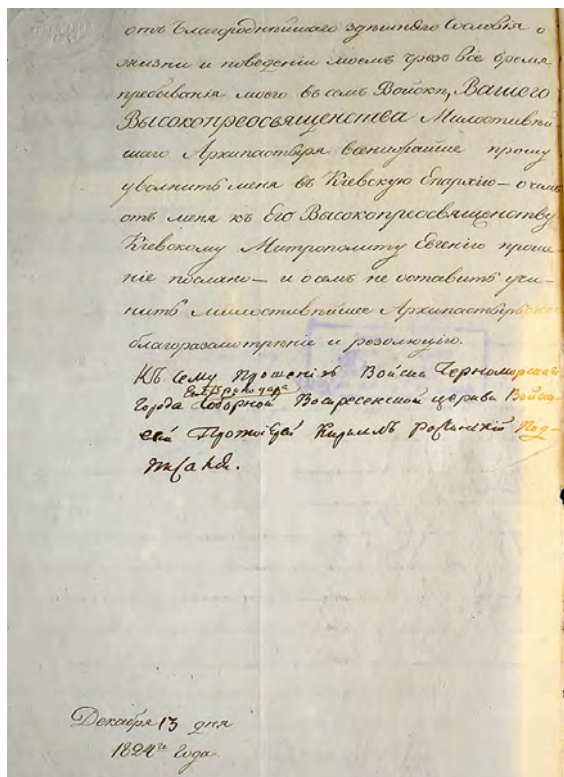 отъ Благороднѣйшаго здѣшняго Сословія о
жизни и поведеніи моемъ чрезъ все время
пребыванія моего въ семъ Войскѣ, Вашего
Высокопреосвященства Милостивѣй
шаго Архипастыря всенижайше прошу
уволнить меня въ Кіевскую Епархію – о чемъ
отъ меня къ Его Высокопреосвященству
Кіевскому Митрополиту Евгенію проше-
ніе послано – и о семъ не оставить учи-
нить милостивѣйшее Архипастырьское
благоразмотрѣніе и резолюцію.
Къ сему прошенію Войска Черноморскаго
Екатеринодара
Города Соборной Воскресенской церкви Войско-
вой Протоіерей Кирилъ Росинскій Под-
писался.
Декабря 13 дня
1824го Года.